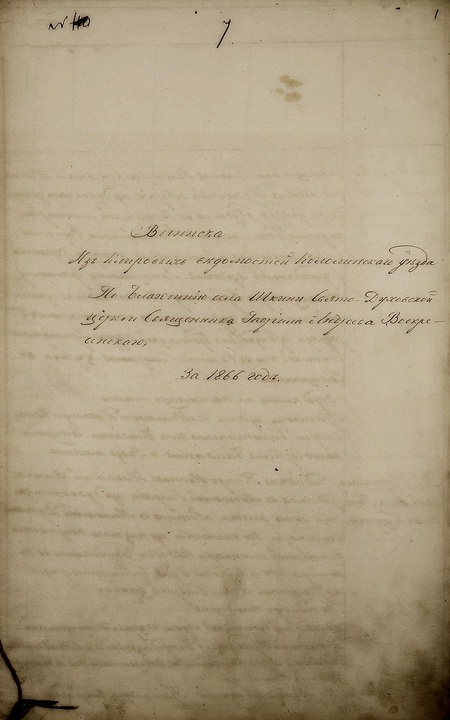 № 40
7
1
Выписка
Изъ Клировыхъ вѣдомостей Коломенскаго уѣзда
По Благочинію села Шкини Свято-Духовской
церкви Священника Гавріила Андреева Воскре-
сенскаго,
За 1866 годъ.